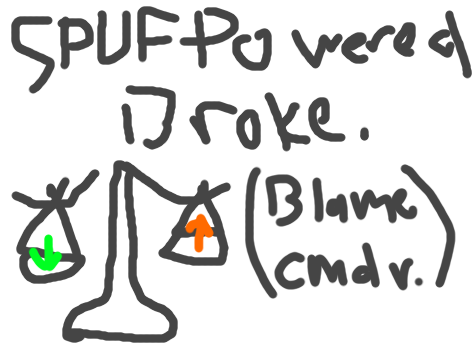 SPUF Powered
Broke.
(Blame
cmdr.)